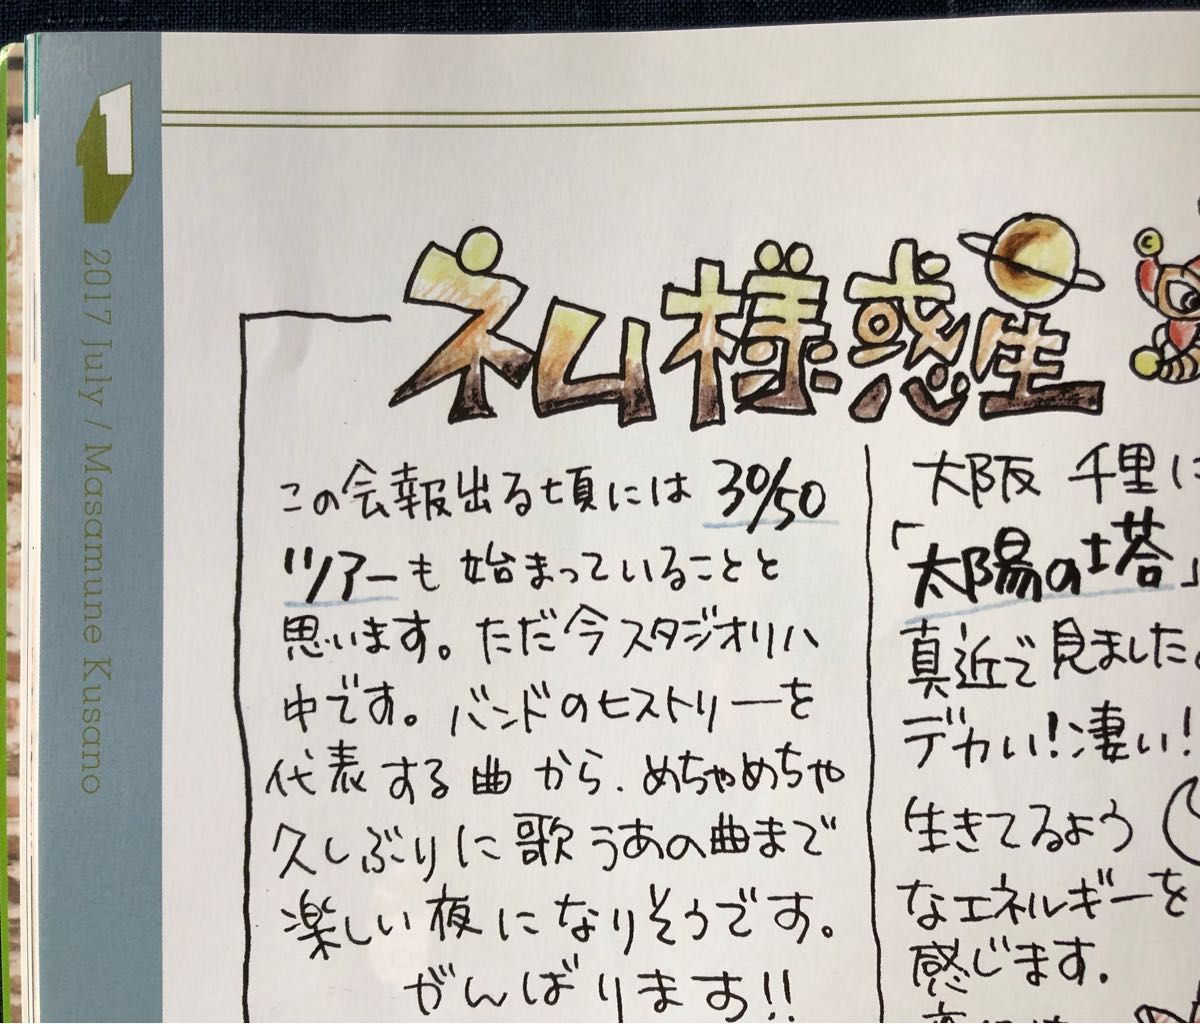 1
2017 July / Masamune Kusano
ネム様惑星
この会報出る頃には 30/50
ツアーも始まっていることと
思います。ただ今スタジオリハ
中です。バンドのヒストリーを
代表する曲から、めちゃめちゃ
久しぶりに歌うあの曲まで
楽しい夜になりそうです。
がんばります!!
大阪 千里に
「太陽の塔」
真近で見ました。
デカい!凄い!
生きてるよう
なエネルギーを
感じます。